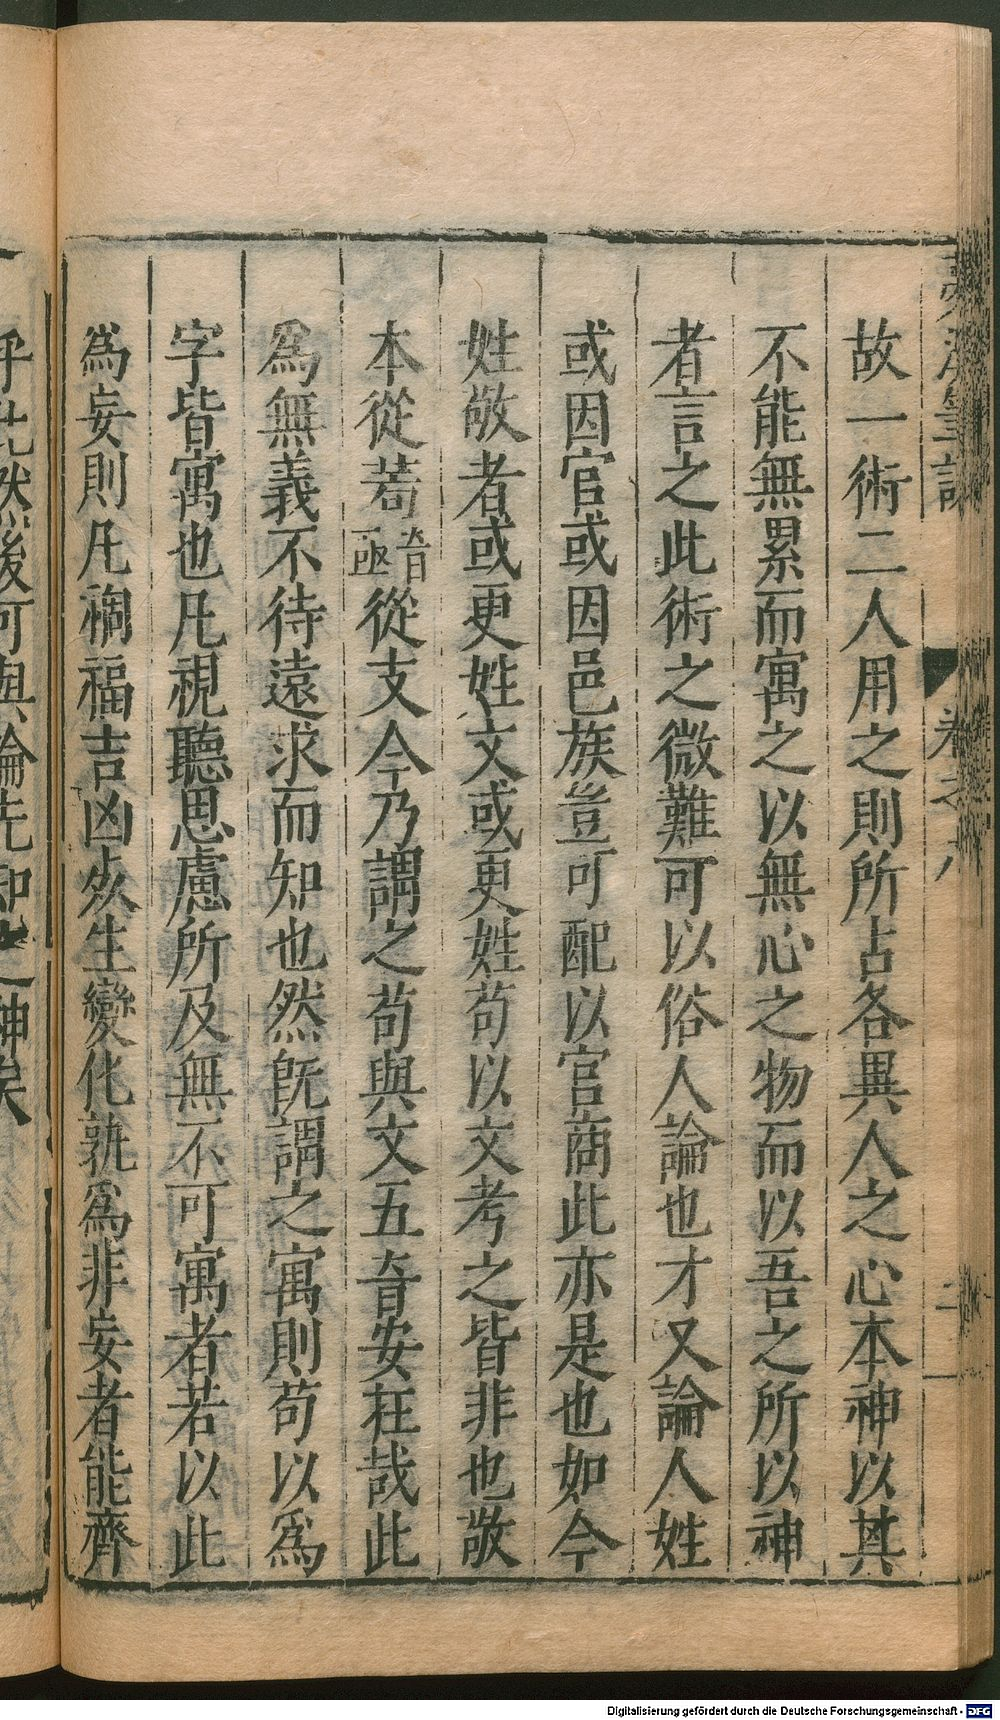 故一術二人用之則所占各異人之心本神以其
不能無累而寓之以無心之物而以吾之所以神
者言之此術之微難可以俗人論也才又論人姓
或因官或因邑族豈可配以宮商此亦是也如今
姓敬者或更姓文或更姓苟以文考之皆非也敬
本從茍音亟從支今乃謂之苟與文五音安在哉此
爲無義不待遠求而知也然旣謂之寓則苟以爲
字皆寓也凡視聽思慮所及無不可寓者若以此
爲妄則凡禍福吉凶死生變化孰爲非妄者能齊
乎此然後可與論先知之神矣
卷之八
二
Digitalisierung gefördert durch die Deutsche Forschungsgemeinschaft - DFG